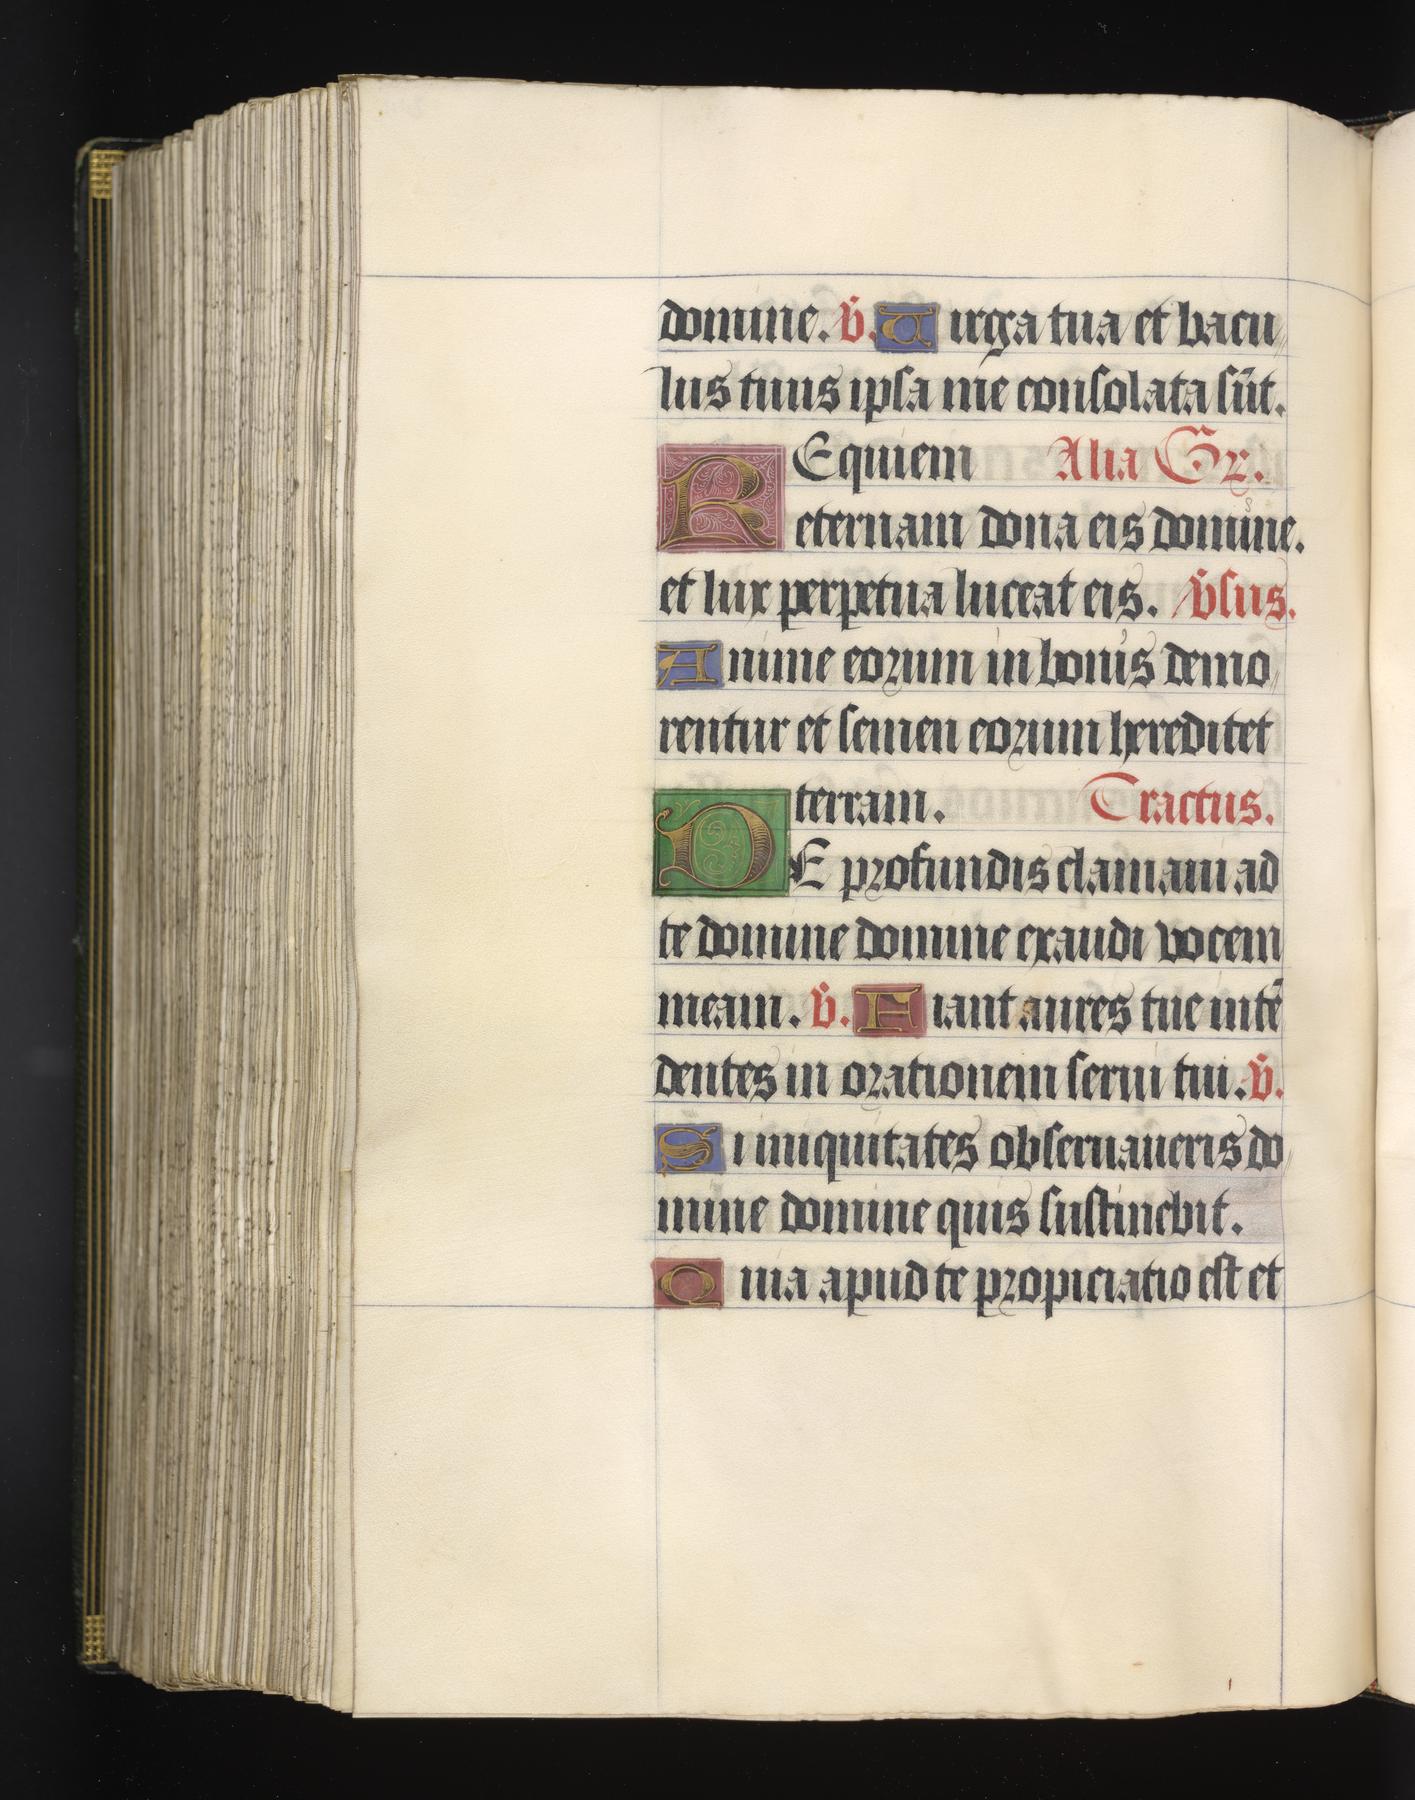 domine. v̄. Uirga tua et bacu
lus tuus ipsa me consolata sūt.
REquiem Alia Gr.
eternam dona eis domine.
et lux perpetua luceat eis. v̄sus.
Anime eorum in bonis demo
rentur et semen eorum hereditet
terram. Tractus.
DE profundis clamaui ad
te domine domine exaudi vocem
meam. v̄. Fiant aures tue intē
dentes in orationem serui tui. v̄.
Si iniquitates obseruaueris do
mine domine quis sustinebit.
Quia apud te propiciatio est et